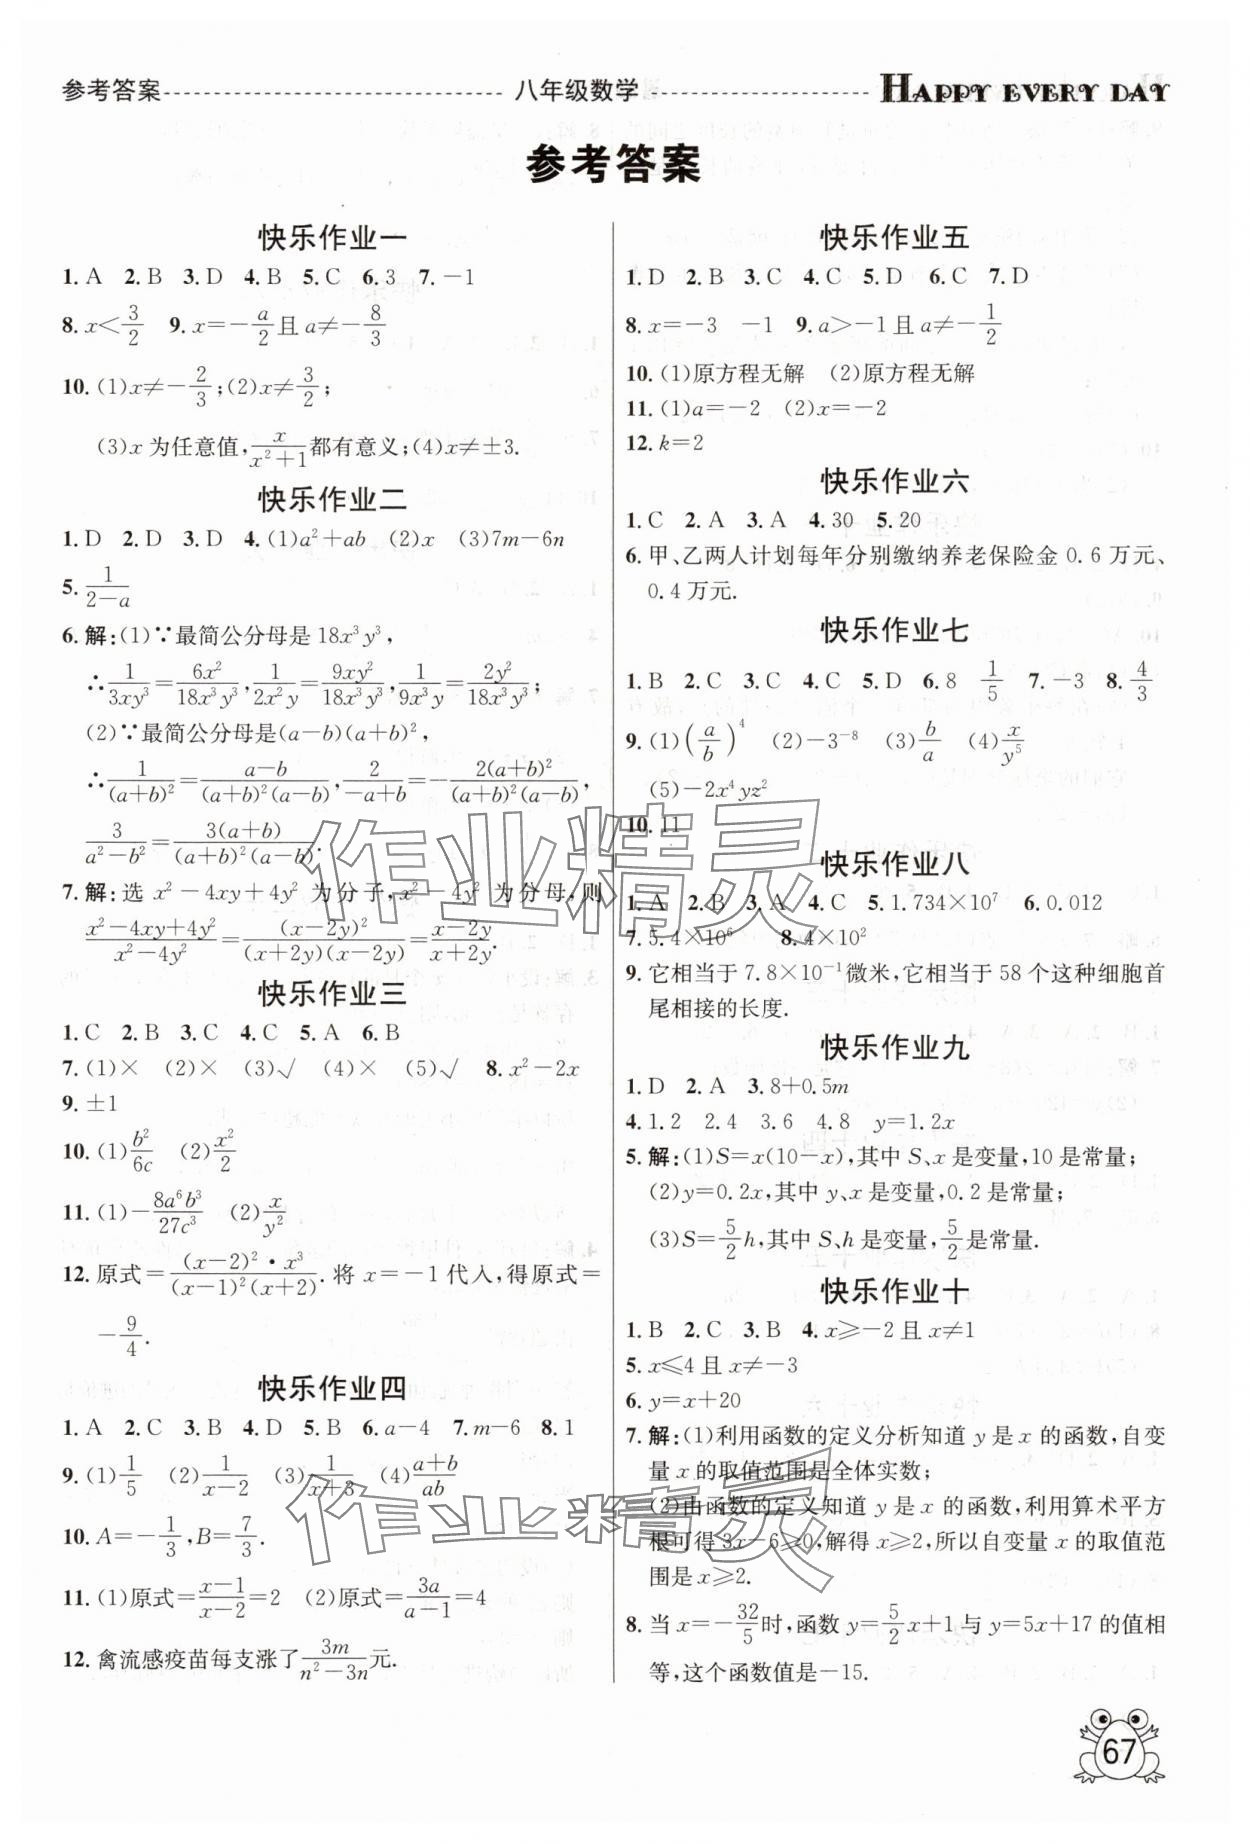 参考答案 八年级数学 HAPPY EVERY DAY
参考答案
快乐作业一
1. A 2. B 3. D 4. B 5. C 6. 3 7. －1
8. x＜3/2 9. x＝－a/2且 a≠－8/3
10. (1)x≠－2/3；(2)x≠3/2；
(3)x 为任意值，x/(x²＋1)都有意义；(4)x≠±3.
快乐作业二
1. D 2. D 3. D 4. (1)a²＋ab (2)x (3)7m－6n
5. 1/(2－a)
6. 解：(1)∵最简公分母是 18x³y³，
∴1/(3xy³)＝6x²/(18x³y³)，1/(2x²y)＝9xy²/(18x³y³)，1/(9x³y)＝2y²/(18x³y³)；
(2)∵最简公分母是(a－b)(a＋b)²，
∴1/(a＋b)²＝(a－b)/((a＋b)²(a－b))，2/(－a＋b)＝－2(a＋b)²/((a＋b)²(a－b))，
3/(a²－b²)＝3(a＋b)/((a＋b)²(a－b)).
7. 解：选 x²－4xy＋4y² 为分子，x²－4y² 为分母，则
(x²－4xy＋4y²)/(x²－4y²)＝(x－2y)²/((x＋2y)(x－2y))＝(x－2y)/(x＋2y).
快乐作业三
1. C 2. B 3. C 4. C 5. A 6. B
7. (1)× (2)× (3)√ (4)× (5)√ 8. x²－2x
9. ±1
10. (1)b²/6c (2)x²/2
11. (1)－8a⁶b³/27c³ (2)x/y²
12. 原式＝((x－2)²·x³)/((x－1)²(x＋2)). 将 x＝－1 代入，得原式＝
－9/4.
快乐作业四
1. A 2. C 3. B 4. D 5. B 6. a－4 7. m－6 8. 1
9. (1)1/5 (2)1/(x－2) (3)1/(x＋3) (4)(a＋b)/ab
10. A＝－1/3，B＝7/3.
11. (1)原式＝(x－1)/(x－2)＝2 (2)原式＝3a/(a－1)＝4
12. 禽流感疫苗每支涨了3m/(n²－3n)元.
快乐作业五
1. D 2. B 3. C 4. C 5. D 6. C 7. D
8. x＝－3 －1 9. a＞－1 且 a≠－1/2
10. (1)原方程无解 (2)原方程无解
11. (1)a＝－2 (2)x＝－2
12. k＝2
快乐作业六
1. C 2. A 3. A 4. 30 5. 20
6. 甲、乙两人计划每年分别缴纳养老保险金 0.6 万元、
0.4 万元.
快乐作业七
1. B 2. C 3. C 4. C 5. D 6. 8 1/5 7. －3 8. 4/3
9. (1)(a/b)⁴ (2)－3⁻⁸ (3)b/a (4)x/y⁵
(5)－2x⁴yz²
10. 11
快乐作业八
1. A 2. B 3. A 4. C 5. 1.734×10⁷ 6. 0.012
7. 5.4×10⁶ 8. 4×10²
9. 它相当于 7.8×10⁻¹微米，相当于 58 个这种细胞首
尾相接的长度.
快乐作业九
1. D 2. A 3. 8＋0.5m
4. 1.2 2.4 3.6 4.8 y＝1.2x
5. 解：(1)S＝x(10－x)，其中 S、x 是变量，10 是常量；
(2)y＝0.2x，其中 y、x 是变量，0.2 是常量；
(3)S＝5/2h，其中 S、h 是变量，5/2是常量.
快乐作业十
1. B 2. C 3. B 4. x≥－2 且 x≠1
5. x≤4 且 x≠－3
6. y＝x＋20
7. 解：(1)利用函数的定义分析知道 y 是 x 的函数，自变
量 x 的取值范围是全体实数；
(2)由函数的定义知道 y 是 x 的函数，利用算术平方
根可得 3x－6≥0，解得 x≥2，所以自变量 x 的取值范
围是 x≥2.
8. 当 x＝－32/5时，函数 y＝5/2x＋1 与 y＝5x＋17 的值相
等，这个函数值是－15.
67
作业精灵
作业精灵